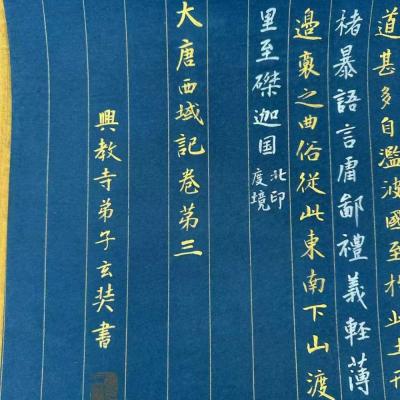 道甚多自濫波國至於此土形
暴語言庸鄙禮義輕薄
邊裔之曲俗從此東南下山渡
里至磔迦国北印度境
大唐西域記卷第三
興教寺弟子玄奘書